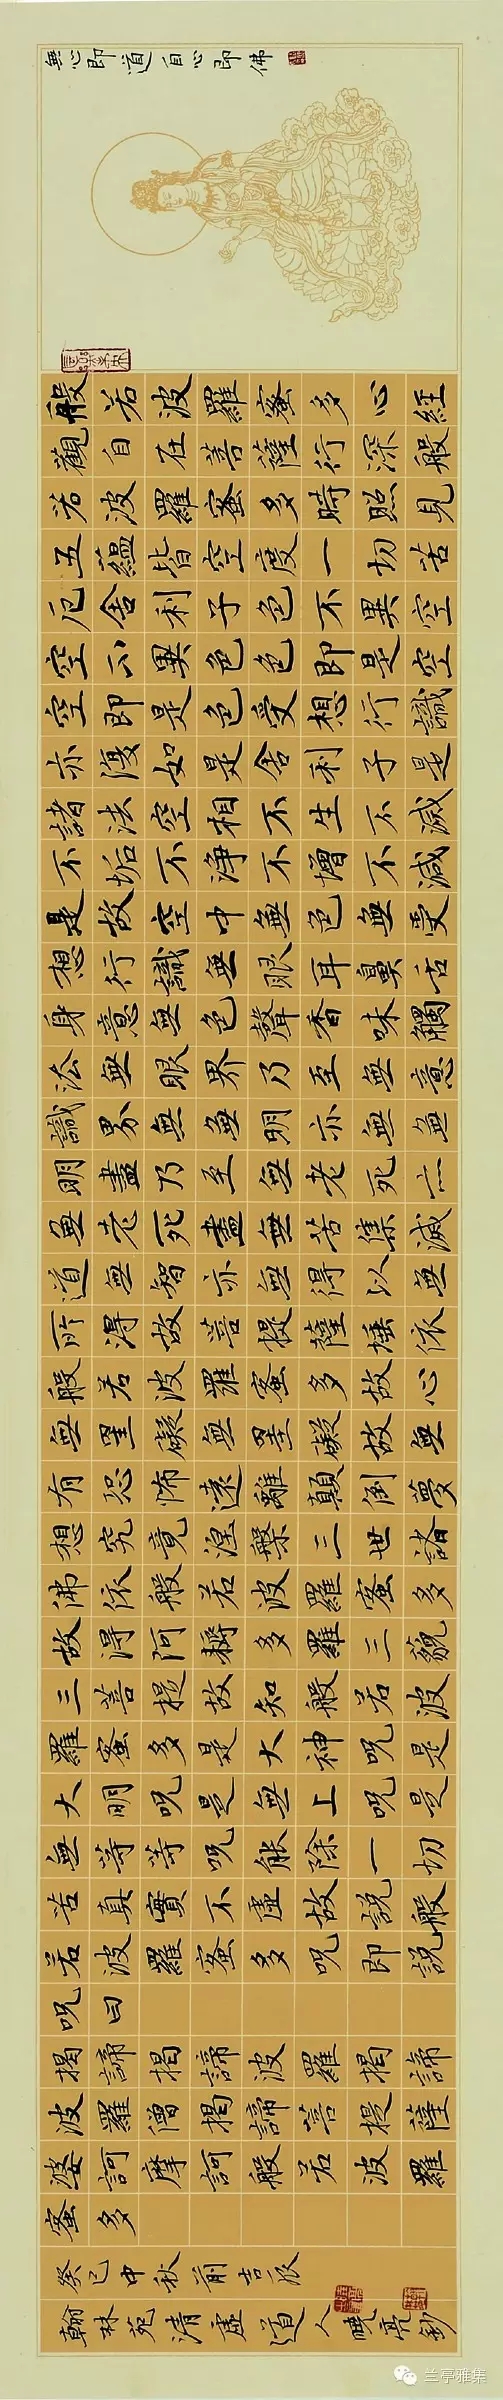 無心即道自心即佛
般若波羅蜜多心經
觀自在菩薩行深般
若波羅蜜多時照見
五蘊皆空度一切苦
厄舍利子色不異空
空不異色色即是空
空即是色受想行識
亦復如是舍利子是
諸法空相不生不滅
不垢不淨不增不減
是故空中無色無受
想行識無眼耳鼻舌
身意無色聲香味觸
法無眼界乃至無意
識界無無明亦無無
明盡乃至無老死亦
無老死盡無苦集滅
道無智亦無得以無
所得故菩提薩埵依
般若波羅蜜多故心
無罣礙無罣礙故無
有恐怖遠離顛倒夢
想究竟涅槃三世諸
佛依般若波羅蜜多
故得阿耨多羅三藐
三菩提故知般若波
羅蜜多是大神呪是
大明呪是無上呪是
無等等呪能除一切
苦真實不虛故說般
若波羅蜜多呪即說
呪曰
揭諦揭諦波羅揭諦
波羅僧揭諦菩提薩
婆訶摩訶般若波羅
蜜多
癸巳中秋前吉辰
翰林苑清虛道人曉亮鈔
兰亭雅集